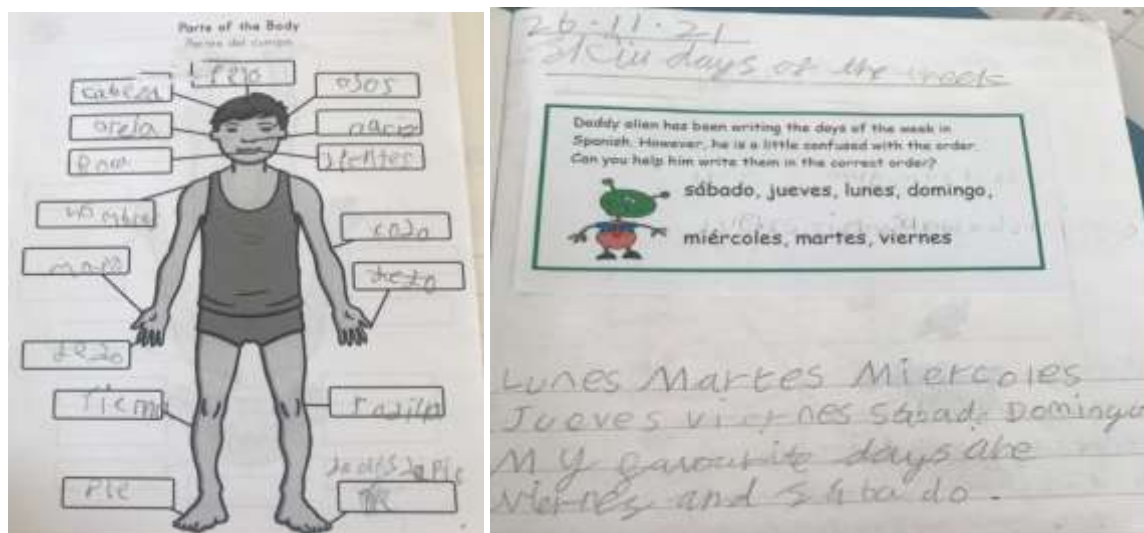 Parts of the Body
Partes del cuerpo
Pelo
cabeza
ojos
oreja
Boca
dientes
hombro
codo
mano
dedo
dedo
Pierna
rodilla
Pie
26.11.21
days of the week
Daddy alien has been writing the days of the week in
Spanish. However, he is a little confused with the order.
Can you help him write them in the correct order?
sábado, jueves, lunes, domingo,
miércoles, martes, viernes
Lunes Martes Miercoles
Jueves viernes Sábado Domingo
My favourite days are
Viernes and Sábado.